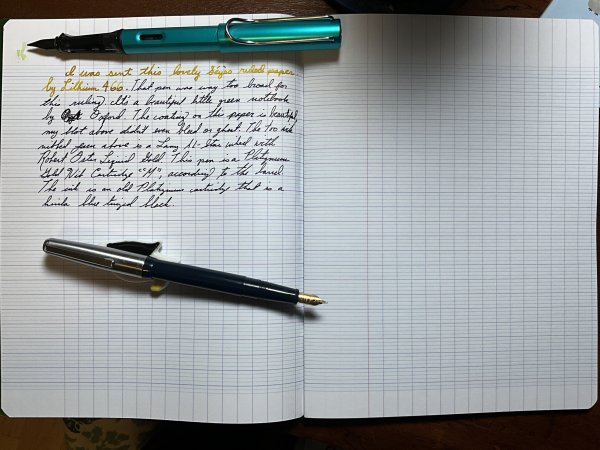 I was sent this lovely Séyès ruled paper
by Lithium 466. That pen was way too broad for
this ruling. It's a beautiful little green notebook
by Oxford. The coating on this paper is beautiful,
my blot above didn't even bleed or ghost. The too wide
nibbed pen above is a Lamy Al-Star inked with
Robert Oster Liquid Gold. This pen is a Platignum
Gold Nib Cartridge "M", according to the barrel.
The ink is an old Platignum cartridge that is a
kinda blue tinged black.